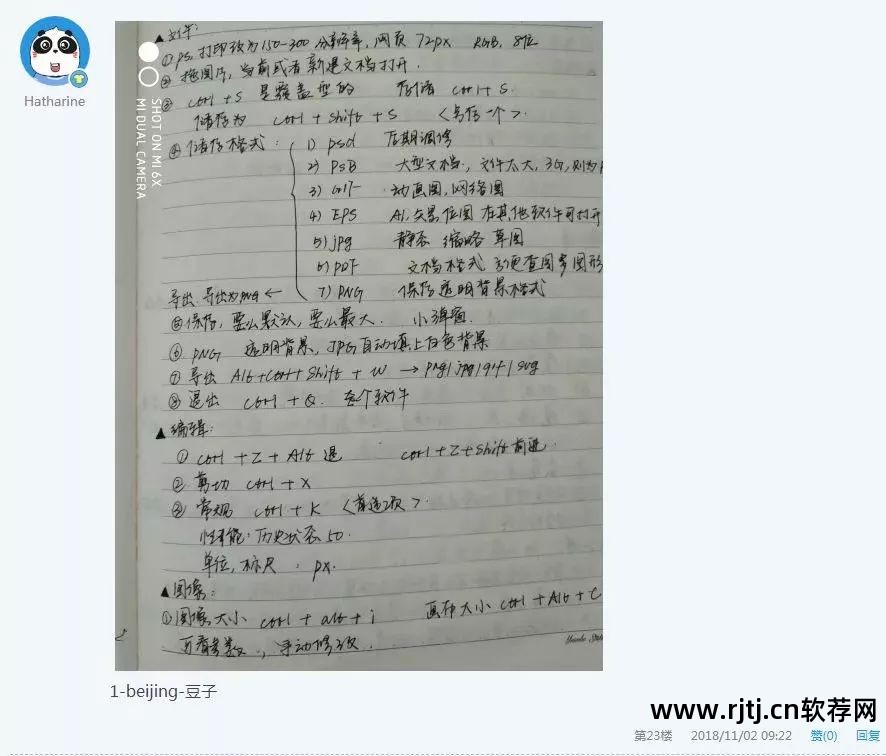 ▲文件:
① ps 打印改为150-300 分辨率, 网页 72px RGB, 8位
② 拖图片, 当前或者新建文档打开.
③ ctrl + S 是覆盖型的 存储 ctrl + S.
储存为 ctrl + Shift + S <另存一个>.
④ 储存格式: 1) psd 后期调修
2) PSB 大型文档, 文件太大, 3G, 则为
3) GIF 动画图, 网络图
4) EPS AI, 矢量位图 在其他软件可打开
5) jpg 静态 缩略 草图
6) PDF 文档格式 方便查图多图形
导出. 导出为PNG ← 7) PNG 保存透明背景格式
⑤ 保存, 要么默认, 要么最大. 小弹窗.
⑥ PNG 透明背景, JPG自动填上白色背景
⑦ 导出 Alt+Ctrl+Shift + W → png/jpg/gif/svg
⑧ 退出 ctrl + Q. 整个软件
▲编辑:
① ctrl + Z + Alt 退 ctrl + Z + Shift 前进.
② 剪切 ctrl + X
③ 常规 ctrl + K <首选项>.
性能: 历史状态 50.
单位, 标尺, px.
▲图像:
① 图像大小 ctrl + alt + i 画布大小 ctrl + Alt + C
可看参数, 手动修改.
SHOT ON MI 6X
MI DUAL CAMERA
Hatharine
1-beijing-豆子
www.rjtj.cn软荐网
第23楼 2018/11/02 09:22 赞(0) 回复